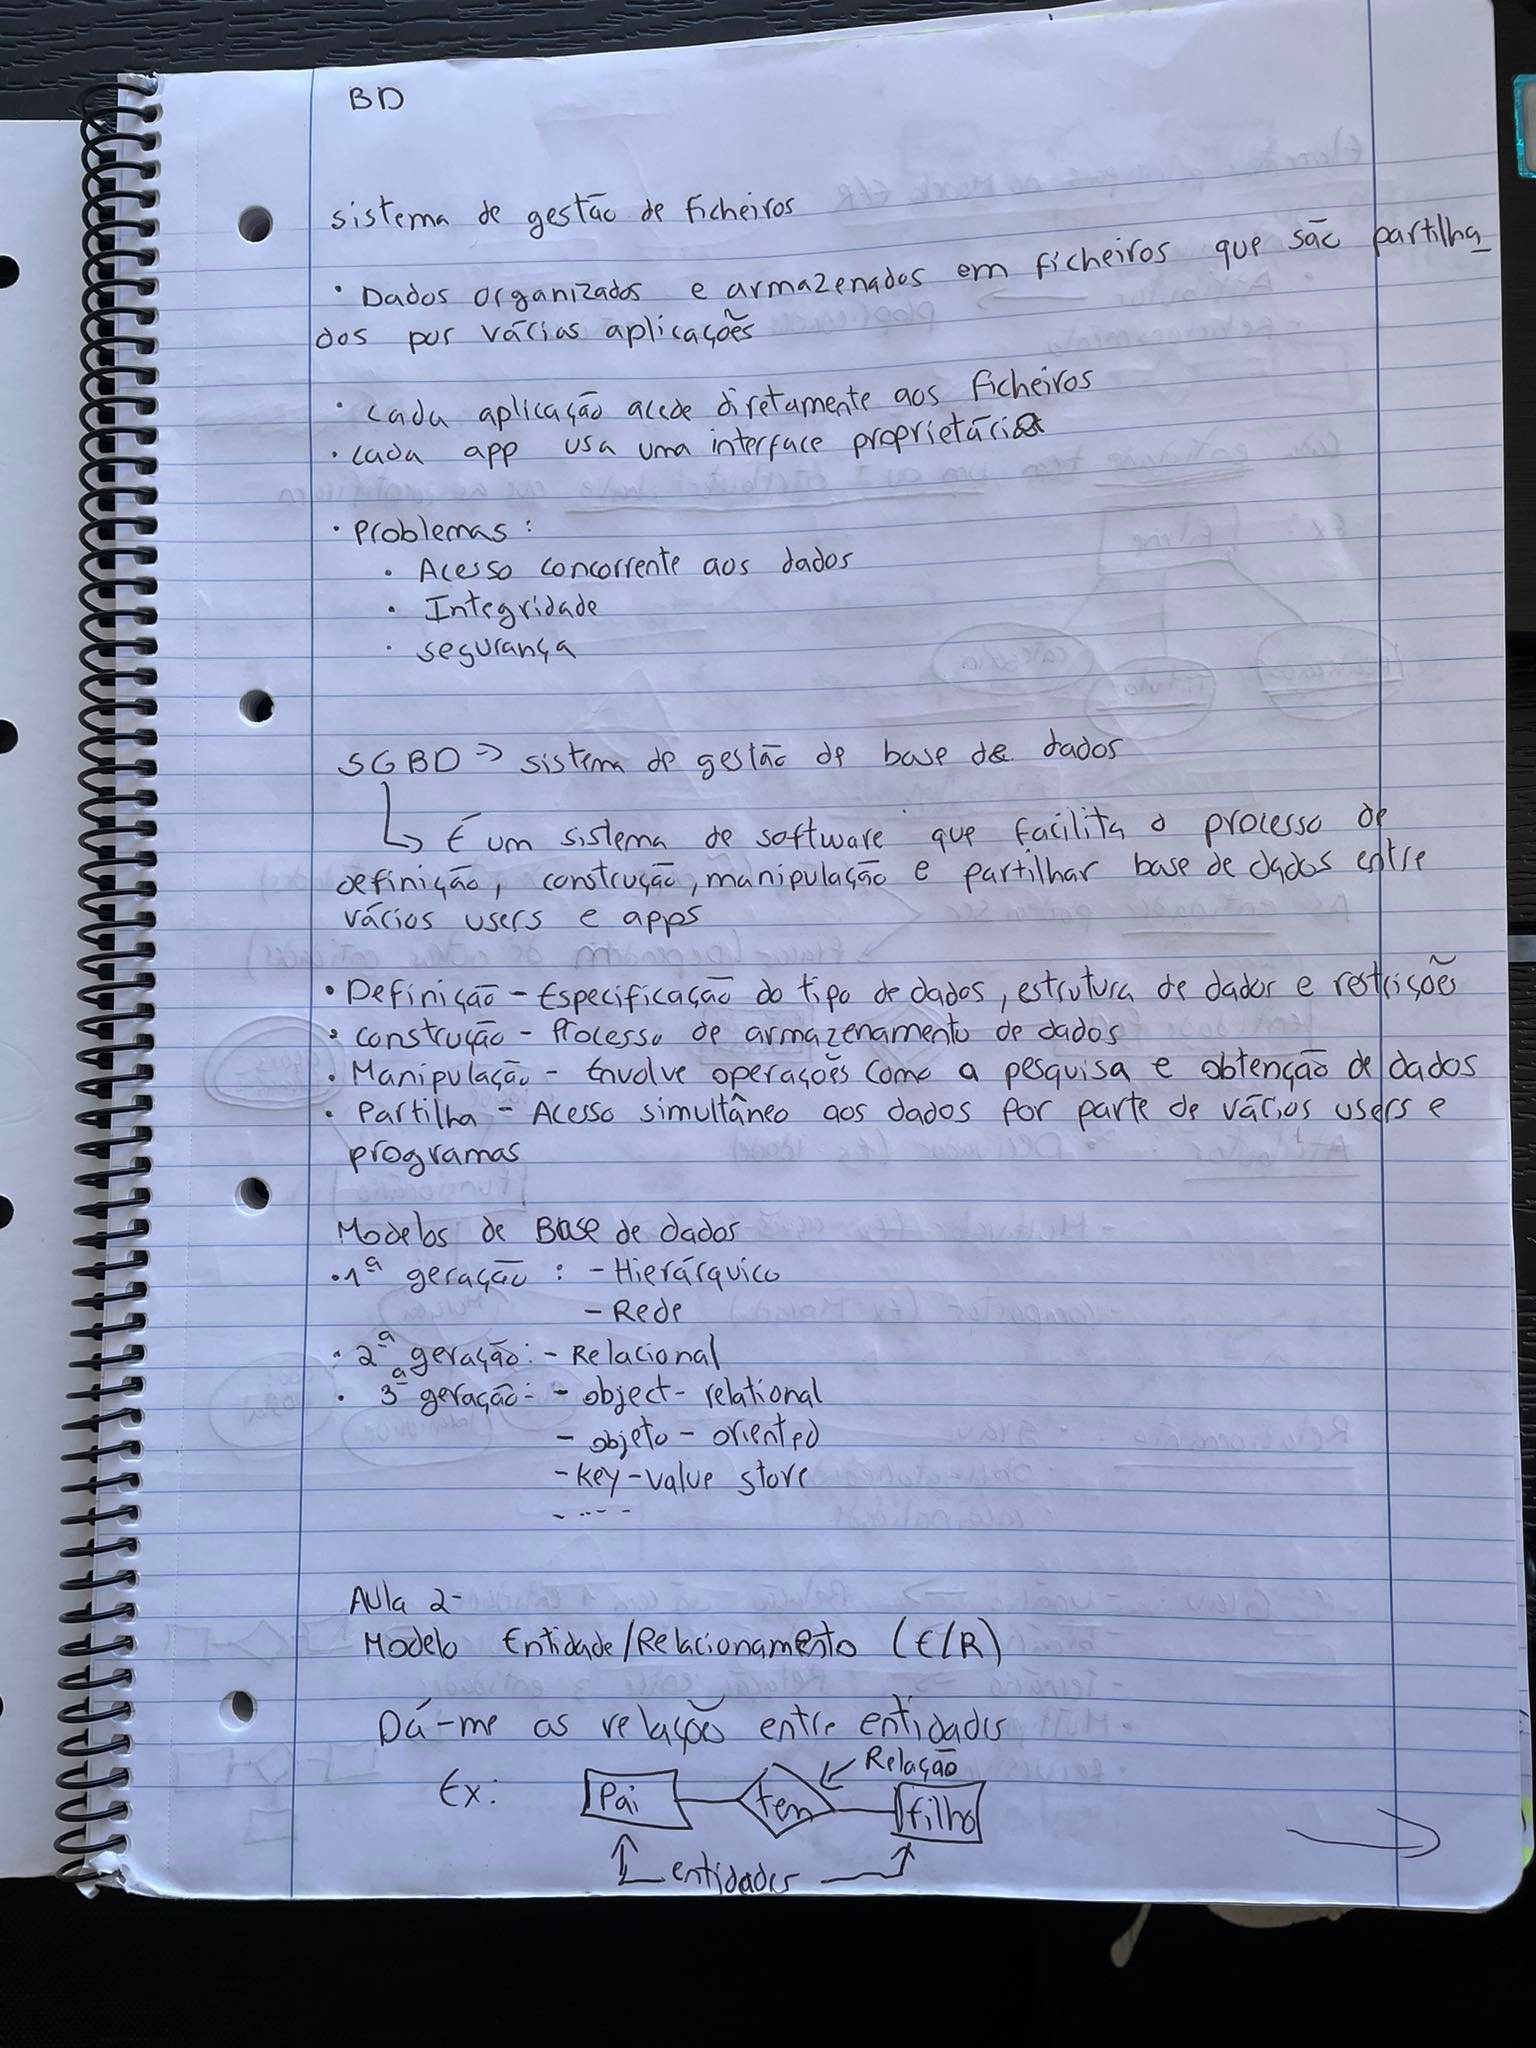 BD
sistema de gestão de ficheiros
• Dados organizados e armazenados em ficheiros que são partilha
dos por várias aplicações
• cada aplicação acede diretamente aos ficheiros
• cada app usa uma interface proprietária
• Problemas:
• Acesso concorrente aos dados
• Integridade
• segurança
SGBD => sistema de gestão de base de dados
↳ É um sistema de software que facilita o processo de
definição, construção, manipulação e partilhar base de dados entre
vários users e apps
• Definição - Especificação do tipo de dados, estrutura de dador e restrições
• construção - Processo de armazenamento de dados
• Manipulação - Envolve operações como a pesquisa e obtenção de dados
• Partilha - Acesso simultâneo aos dados por parte de vários users e
programas
Modelos de Base de dados
• 1ª geração: - Hierárquico
- Rede
• 2ª geração: - Relacional
• 3ª geração: - object-relational
- objeto-oriented
- key-value store
- ....
Aula 2-
Modelo Entidade/Relacionamento (E/R)
Dá-me as relações entre entidades
Relação
Ex: Pai tem filho
entidades